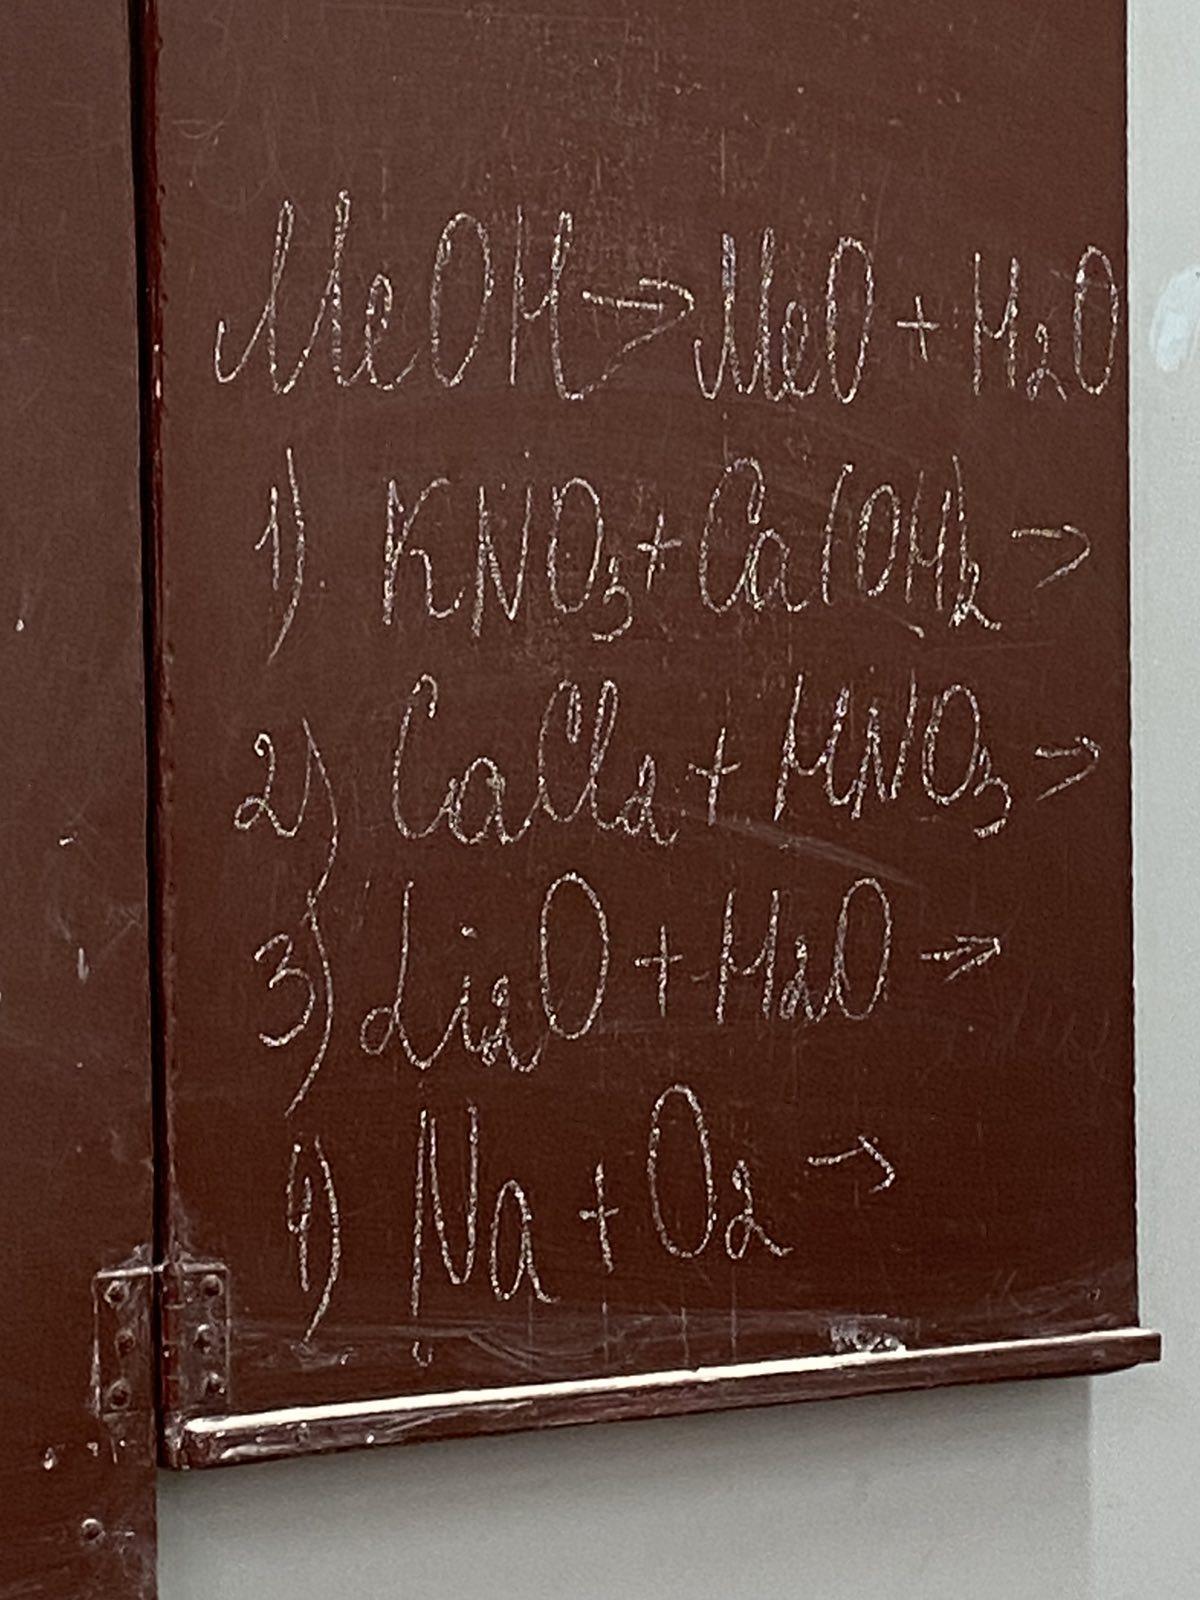 MeOH → MeO + H₂O
1) KNO₃ + Ca(OH)₂ →
2) CaCl₂ + HNO₃ →
3) Li₂O + H₂O →
4) Na + O₂ →